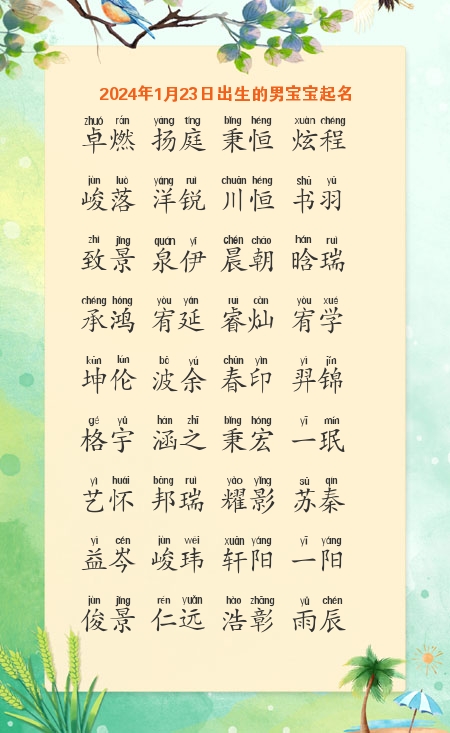 2024年1月23日出生的男宝宝起名
zhuó rán yáng tíng bǐng héng xuàn chéng
卓燃 扬庭 秉恒 炫程
jùn luò yáng ruì chuān héng shū yǔ
峻落 洋锐 川恒 书羽
zhì jǐng quán yī chén cháo hán ruì
致景 泉伊 晨朝 晗瑞
chéng hóng yòu yán ruì càn yòu xué
承鸿 宥延 睿灿 宥学
kūn lún bō yú chūn yìn yì jǐn
坤伦 波余 春印 羿锦
gé yǔ hán zhī bǐng hóng yī mín
格宇 涵之 秉宏 一珉
yì huái bāng ruì yào yǐng sū qín
艺怀 邦瑞 耀影 苏秦
yì cén jùn wěi xuān yáng yī yáng
益岑 峻玮 轩阳 一阳
jùn jǐng rén yuǎn hào zhāng yǔ chén
俊景 仁远 浩彰 雨辰